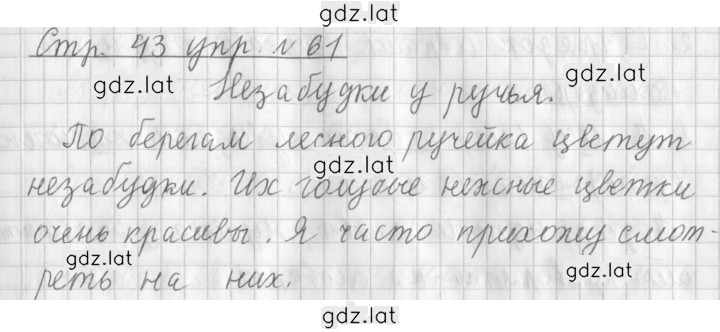 gdz.lat
Стр. 43 упр № 61
gdz.lat
gdz.lat
gdz.lat
Незабудки у ручья.
По берегам лесного ручейка цветут
gdz.lat
незабудки. Их голубые нежные цветки
очень красивы. Я часто прихожу смот-
gdz.lat
gdz.lat
реть на них.
gdz.lat